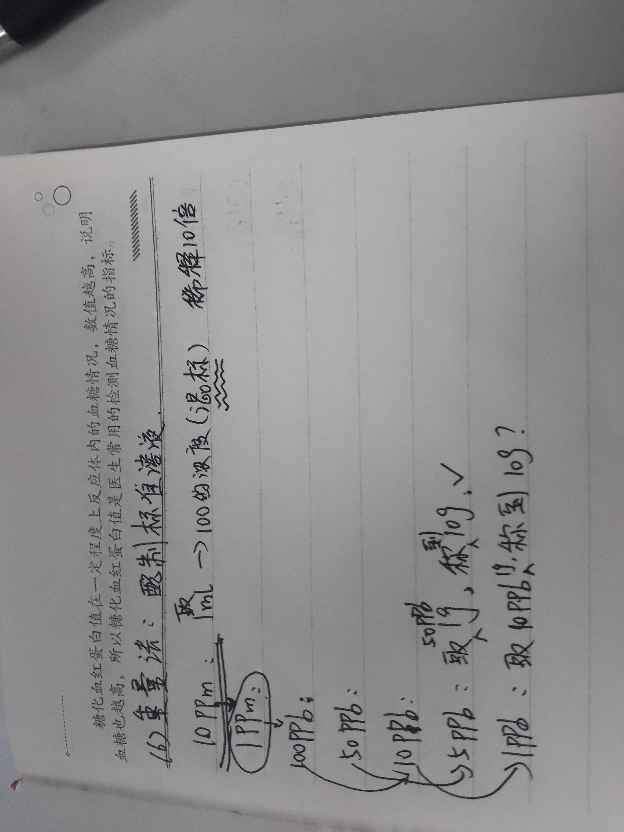 糖化血红蛋白值在一定程度上反应体内的血糖情况，数值越高，说明
血糖也越高，所以糖化血红蛋白值是医生常用的检测血糖情况的指标。
(6) 重量法：配制标准溶液
10PPm：取1mL→100的浓度(混标) 稀释10倍
1PPm：
100PPb：
50PPb：
10PPb：
5PPb：取50PPb 1g，称到10g，✓
1PPb：取10PPb 1g，称到10g？